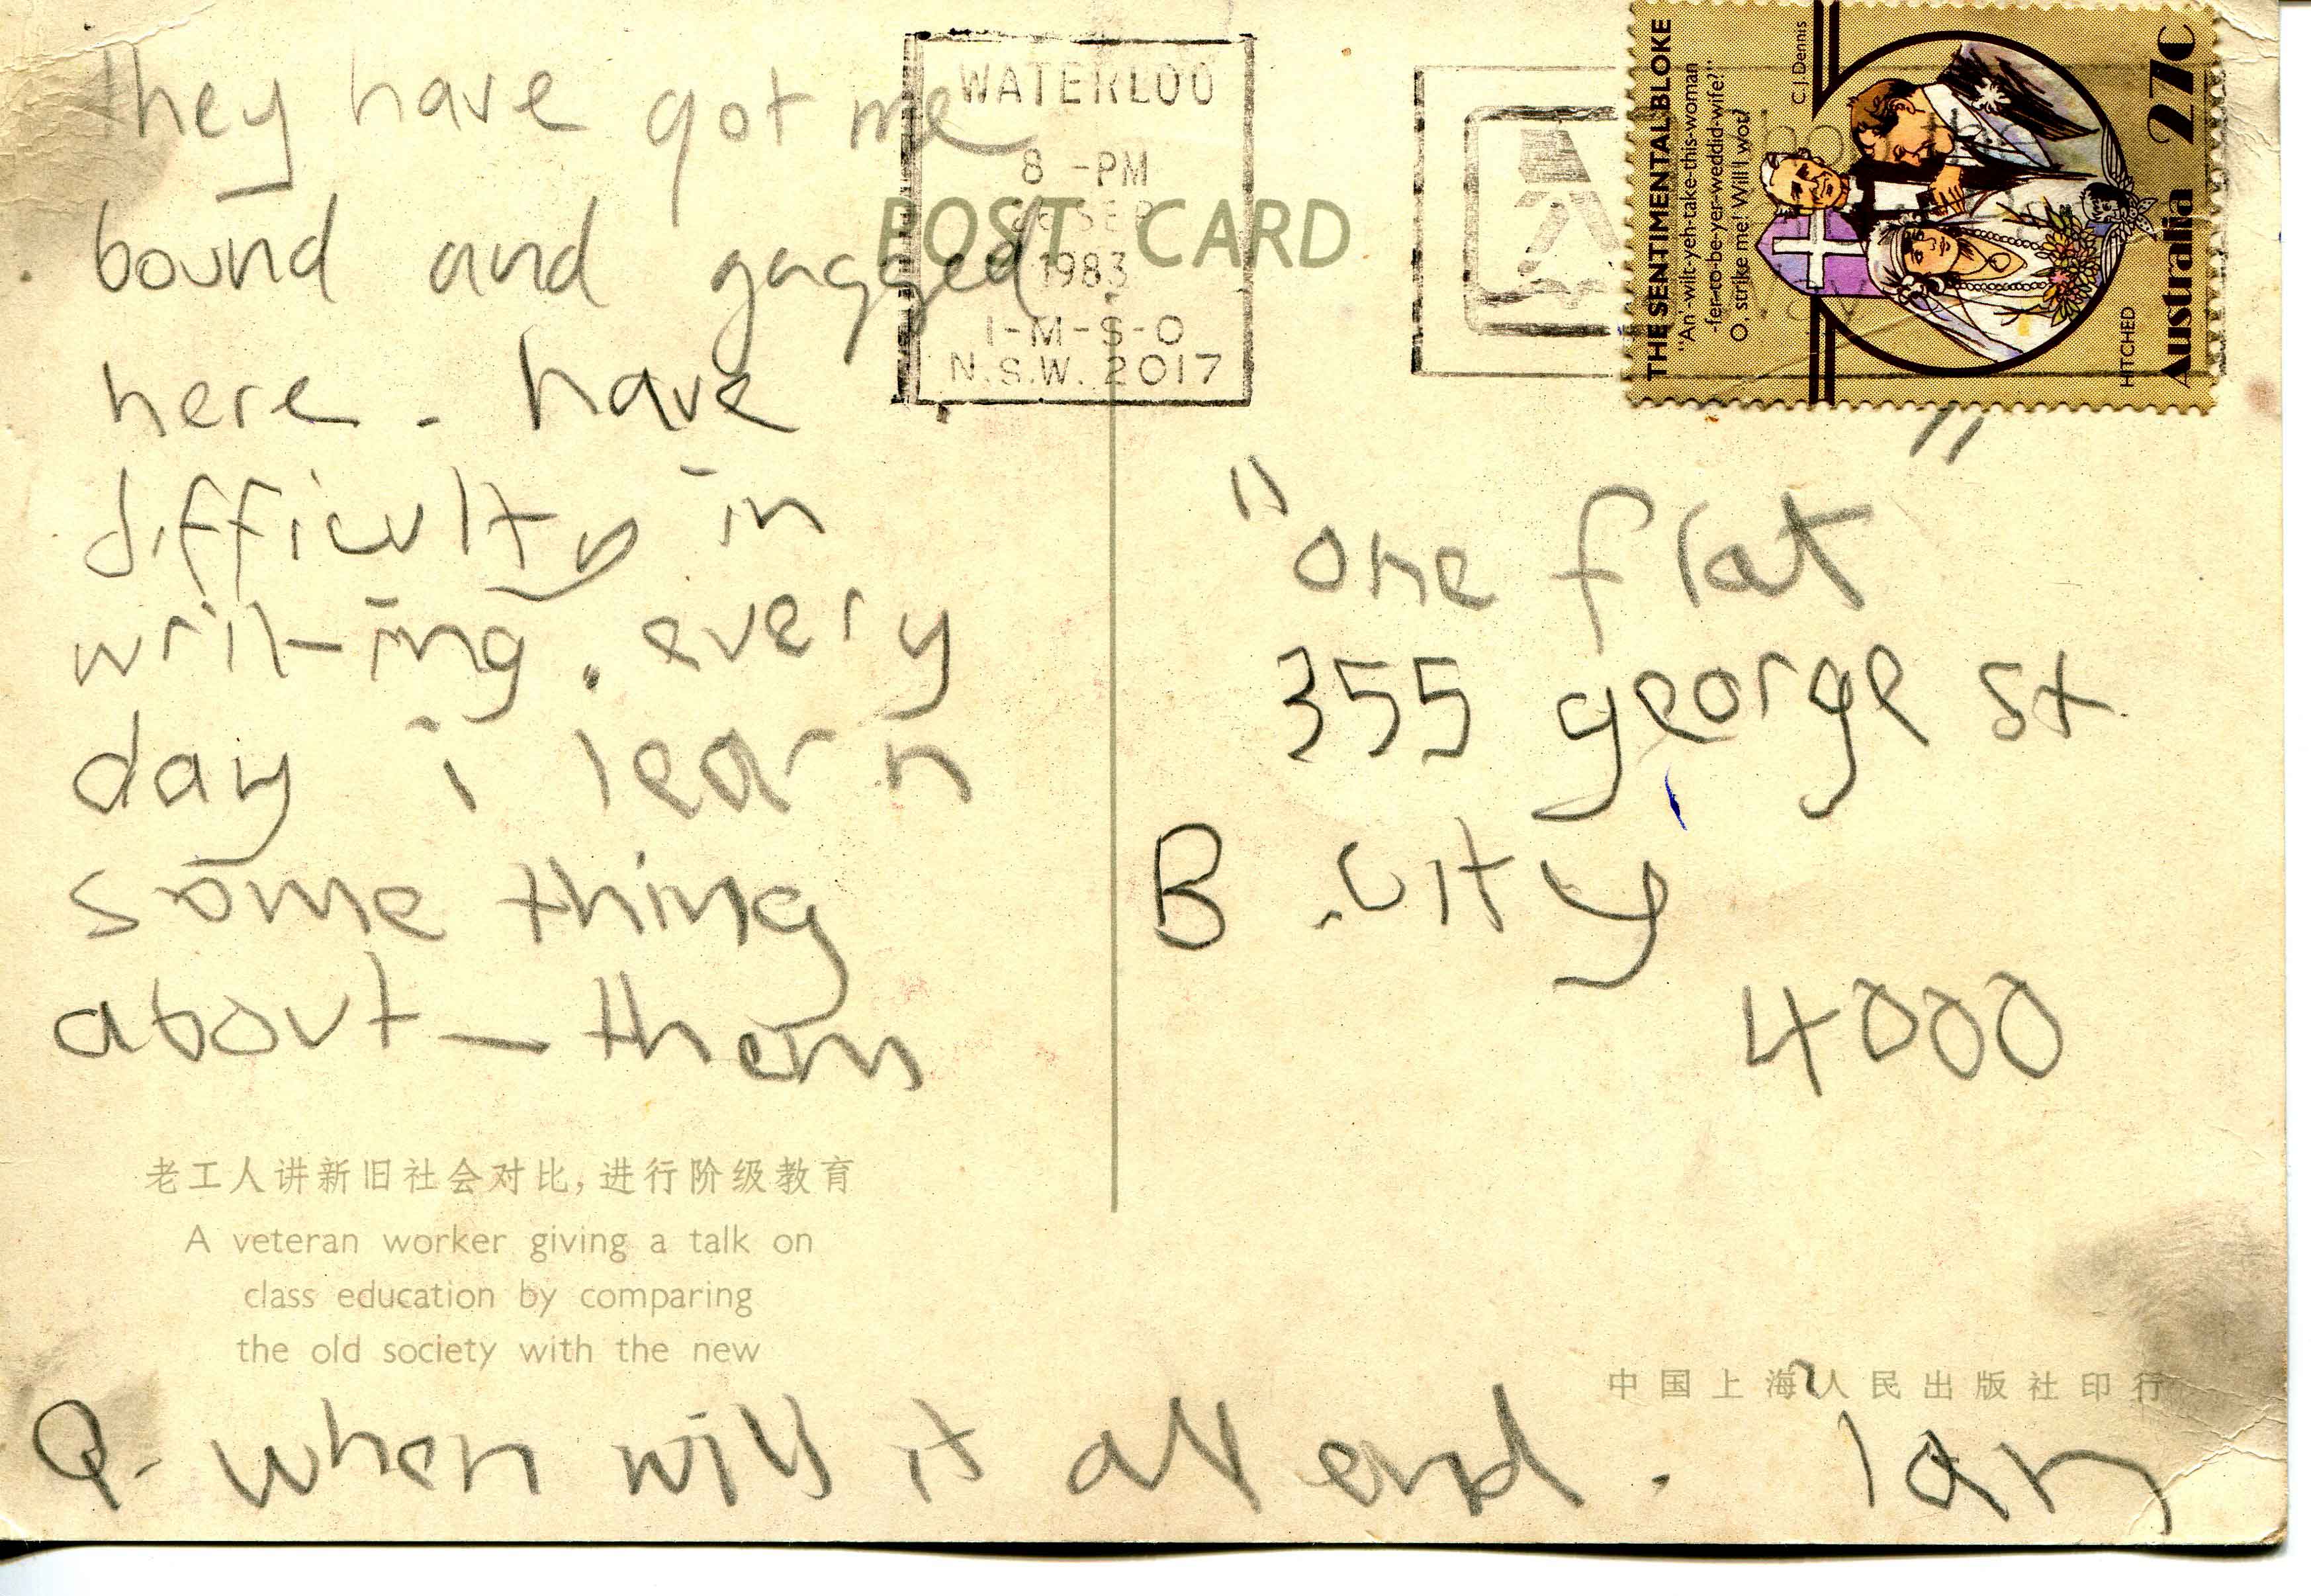 they have got me
bound and gagged
here. have
difficulty in
writing. every
day i learn
some thing
about them
老工人讲新旧社会对比，进行阶级教育
A veteran worker giving a talk on
class education by comparing
the old society with the new
Q. when will it all end. Ian
POST CARD
WATERLOO
8 -PM
SEP
1983
I-M-S-O
N.S.W. 2017
THE SENTIMENTAL BLOKE
"An'-wilt-yeh-take-this-woman
-fer-to-be-yer-weddid-wife?"
O, strike me! Will I wot?
C.J. Dennis
HITCHED
Australia 27c
"one flat"
355 george st
B .city
4000
中国上海人民出版社印行